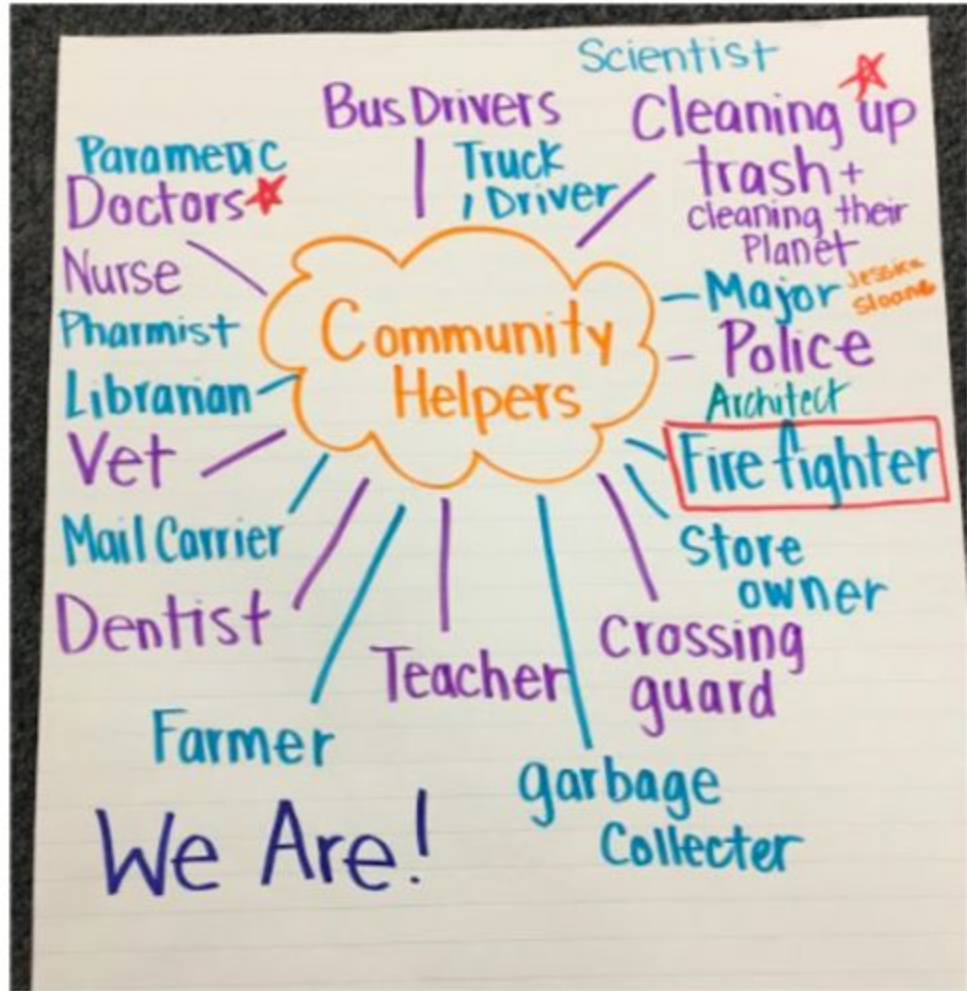 Scientist
Bus Drivers
Cleaning up
Truck
Driver
trash +
cleaning their
Planet
Paramedic
Doctors
Nurse
Pharmist
Librarian
Vet
Mail Carrier
Dentist
Community
Helpers
Major Jessica
Sloane
Police
Architect
Fire fighter
Store
owner
Crossing
guard
Teacher
Farmer
garbage
Collecter
We Are!